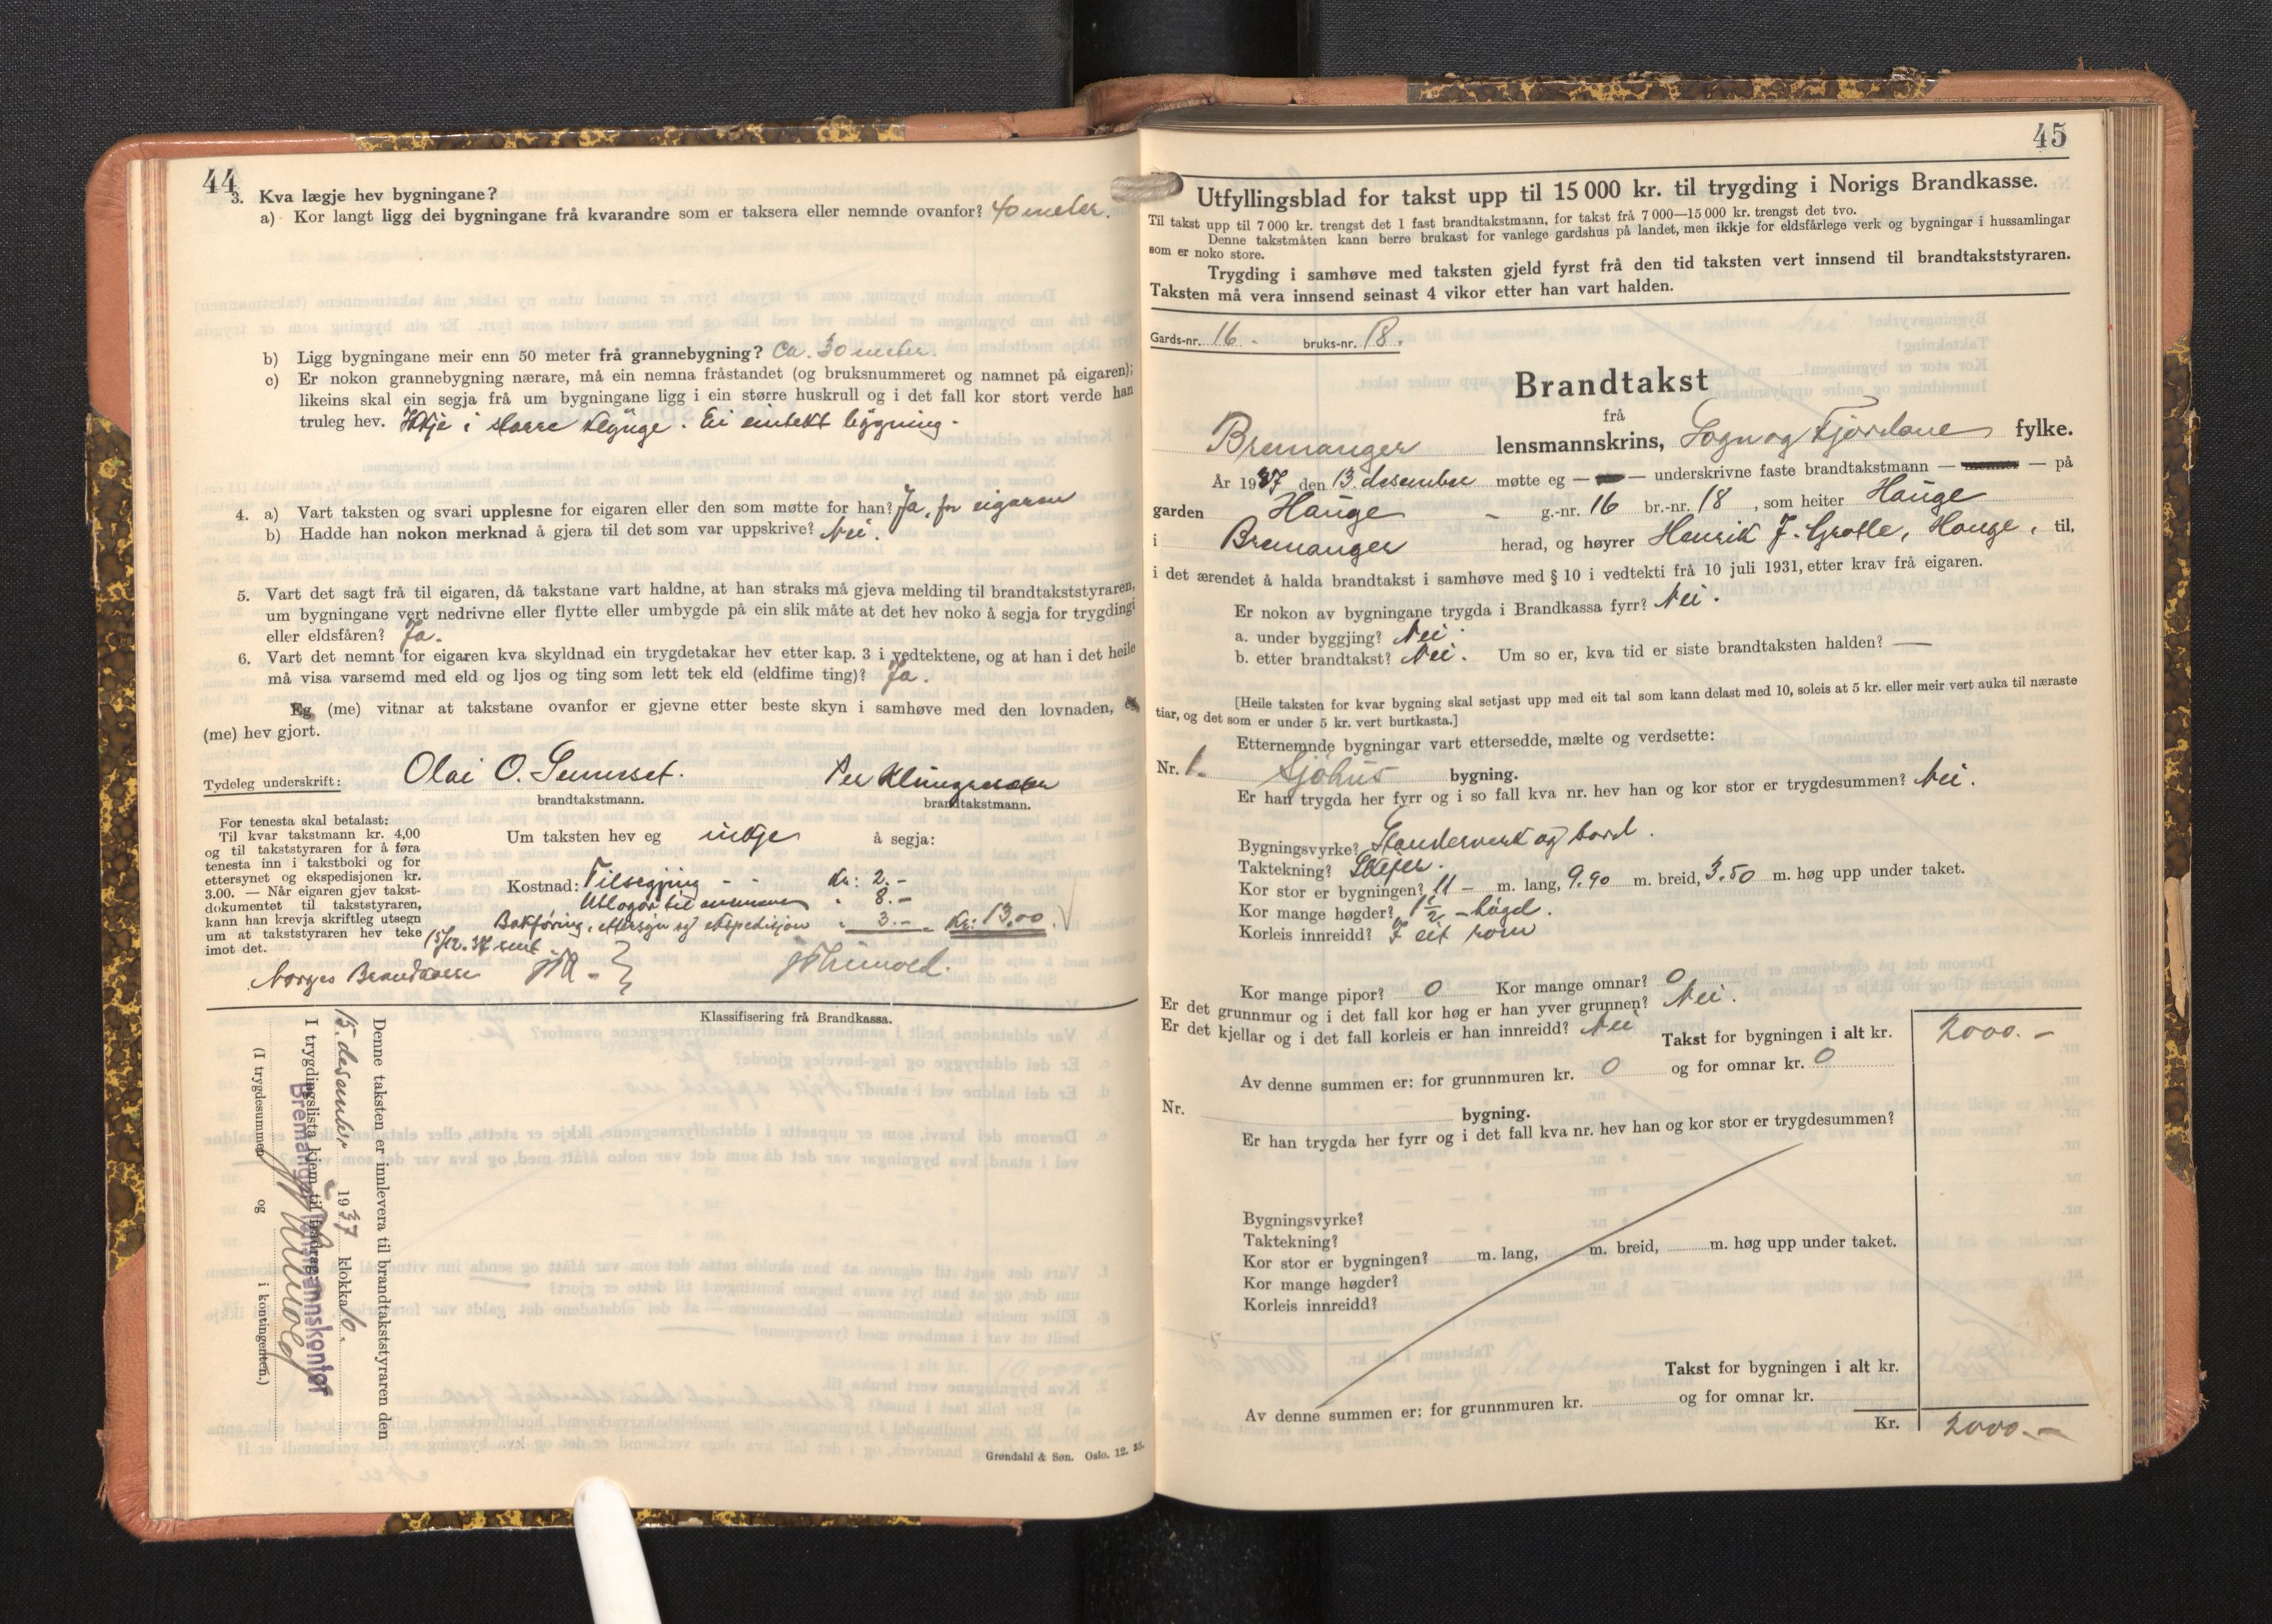 44
3. Kva lægje hev bygningane?
a) Kor langt ligg dei bygningane frå kvarandre som er taksera eller nemnde ovanfor? 40 meter.
b) Ligg bygningane meir enn 50 meter frå grannebygning? Ca. 30 meter.
c) Er nokon grannebygning nærare, må ein nemna fråstandet (og bruksnummeret og namnet på eigaren);
likeins skal ein segja frå um bygningane ligg i ein større huskrull og i det fall kor stort verde han
truleg hev. Ikkje i større klynge. Ei enkelt bygning.
4. a) Vart taksten og svari upplesne for eigaren eller den som møtte for han? Ja, for eigaren
b) Hadde han nokon merknad å gjera til det som var uppskrive? Nei.
5. Vart det sagt frå til eigaren, då takstane vart haldne, at han straks må gjeva melding til brandtakststyraren,
um bygningane vert nedrivne eller flytte eller umbygde på ein slik måte at det hev noko å segja for trygdingi
eller eldsfåren? Ja.
6. Vart det nemnt for eigaren kva skyldnad ein trygdetakar hev etter kap. 3 i vedtektene, og at han i det heile
må visa varsemd med eld og ljos og ting som lett tek eld (eldfime ting)? Ja.
Eg (me) vitnar at takstane ovanfor er gjevne etter beste skyn i samhøve med den lovnaden, eg
(me) hev gjort.
Tydeleg underskrift: Olai O. Per
brandtakstmann. brandtakstmann.
For tenesta skal betalast:
Til kvar takstmann kr. 4,00
og til takststyraren for å føra
tenesta inn i takstboki og for
ettersynet og ekspedisjonen kr.
3.00. — Når eigaren gjev takst-
dokumentet til takststyraren,
kann han krevja skriftleg utsegn
um at takststyraren hev teke
imot det.
Um taksten hev eg inkje å segja:
Kostnad: Tilsegjing - - Kr: 2.-
Utlogor til " 8.-
Bokføring, ettersyn og ekspedisjon " 3.- Kr: 13,00
15/12.37 sent
Norges Brandkasse
Klassifisering frå Brandkassa.
Denne taksten er innlevera til brandtakststyraren den
15. desember 1937 klokka 10.
I trygdingslista kjem til
Bremanger lensmannskontor
(I trygdesummen og i kontingenten.)
Grøndahl & Søn. Oslo. 12. 35.
45
Utfyllingsblad for takst upp til 15 000 kr. til trygding i Norigs Brandkasse.
Til takst upp til 7 000 kr. trengst det 1 fast brandtakstmann, for takst frå 7 000—15 000 kr. trengst det tvo.
Denne takstmåten kann berre brukast for vanlege gardshus på landet, men ikkje for eldsfårlege verk og bygningar i hussamlingar
som er noko store.
Trygding i samhøve med taksten gjeld fyrst frå den tid taksten vert innsend til brandtakststyraren.
Taksten må vera innsend seinast 4 vikor etter han vart halden.
Gards-nr. 16. bruks-nr. 18.
Brandtakst
frå
Bremanger lensmannskrins, Sogn og Fjordane fylke.
År 1937 den 13. desember møtte eg — — underskrivne faste brandtakstmann — menner — på
garden Hauge - g.-nr. 16 br.-nr. 18, som heiter Hauge
i Bremanger herad, og høyrer Henrik J. Grotle, Hauge, til,
i det ærendet å halda brandtakst i samhøve med § 10 i vedtekti frå 10 juli 1931, etter krav frå eigaren.
Er nokon av bygningane trygda i Brandkassa fyrr? Nei.
a. under byggjing? Nei.
b. etter brandtakst? Nei. Um so er, kva tid er siste brandtaksten halden? —
[Heile taksten for kvar bygning skal setjast upp med eit tal som kann delast med 10, soleis at 5 kr. eller meir vert auka til næraste
tiar, og det som er under 5 kr. vert burtkasta.]
Etternemnde bygningar vart ettersedde, mælte og verdsette:
Nr. 1. Sjøhus bygning.
Er han trygda her fyrr og i so fall kva nr. hev han og kor stor er trygdesummen? Nei.
Bygningsvyrke? Standerverk og bord.
Taktekning? Skifer.
Kor stor er bygningen? 11 - m. lang, 9.90 m. breid, 3.50 m. høg upp under taket.
Kor mange høgder? 1 1/2 - høgd.
Korleis innreidd? I eit rom
Kor mange pipor? 0 Kor mange omnar? 0
Er det grunnmur og i det fall kor høg er han yver grunnen? Nei.
Er det kjellar og i det fall korleis er han innreidd? Nei
Takst for bygningen i alt kr. 2000.-
Av denne summen er: for grunnmuren kr. 0 og for omnar kr. 0
Nr. bygning.
Er han trygda her fyrr og i det fall kva nr. hev han og kor stor er trygdesummen?
Bygningsvyrke?
Taktekning?
Kor stor er bygningen? m. lang, m. breid, m. høg upp under taket.
Kor mange høgder?
Korleis innreidd?
Takst for bygningen i alt kr.
Av denne summen er: for grunnmuren kr. og for omnar kr.
Kr. 2000.-